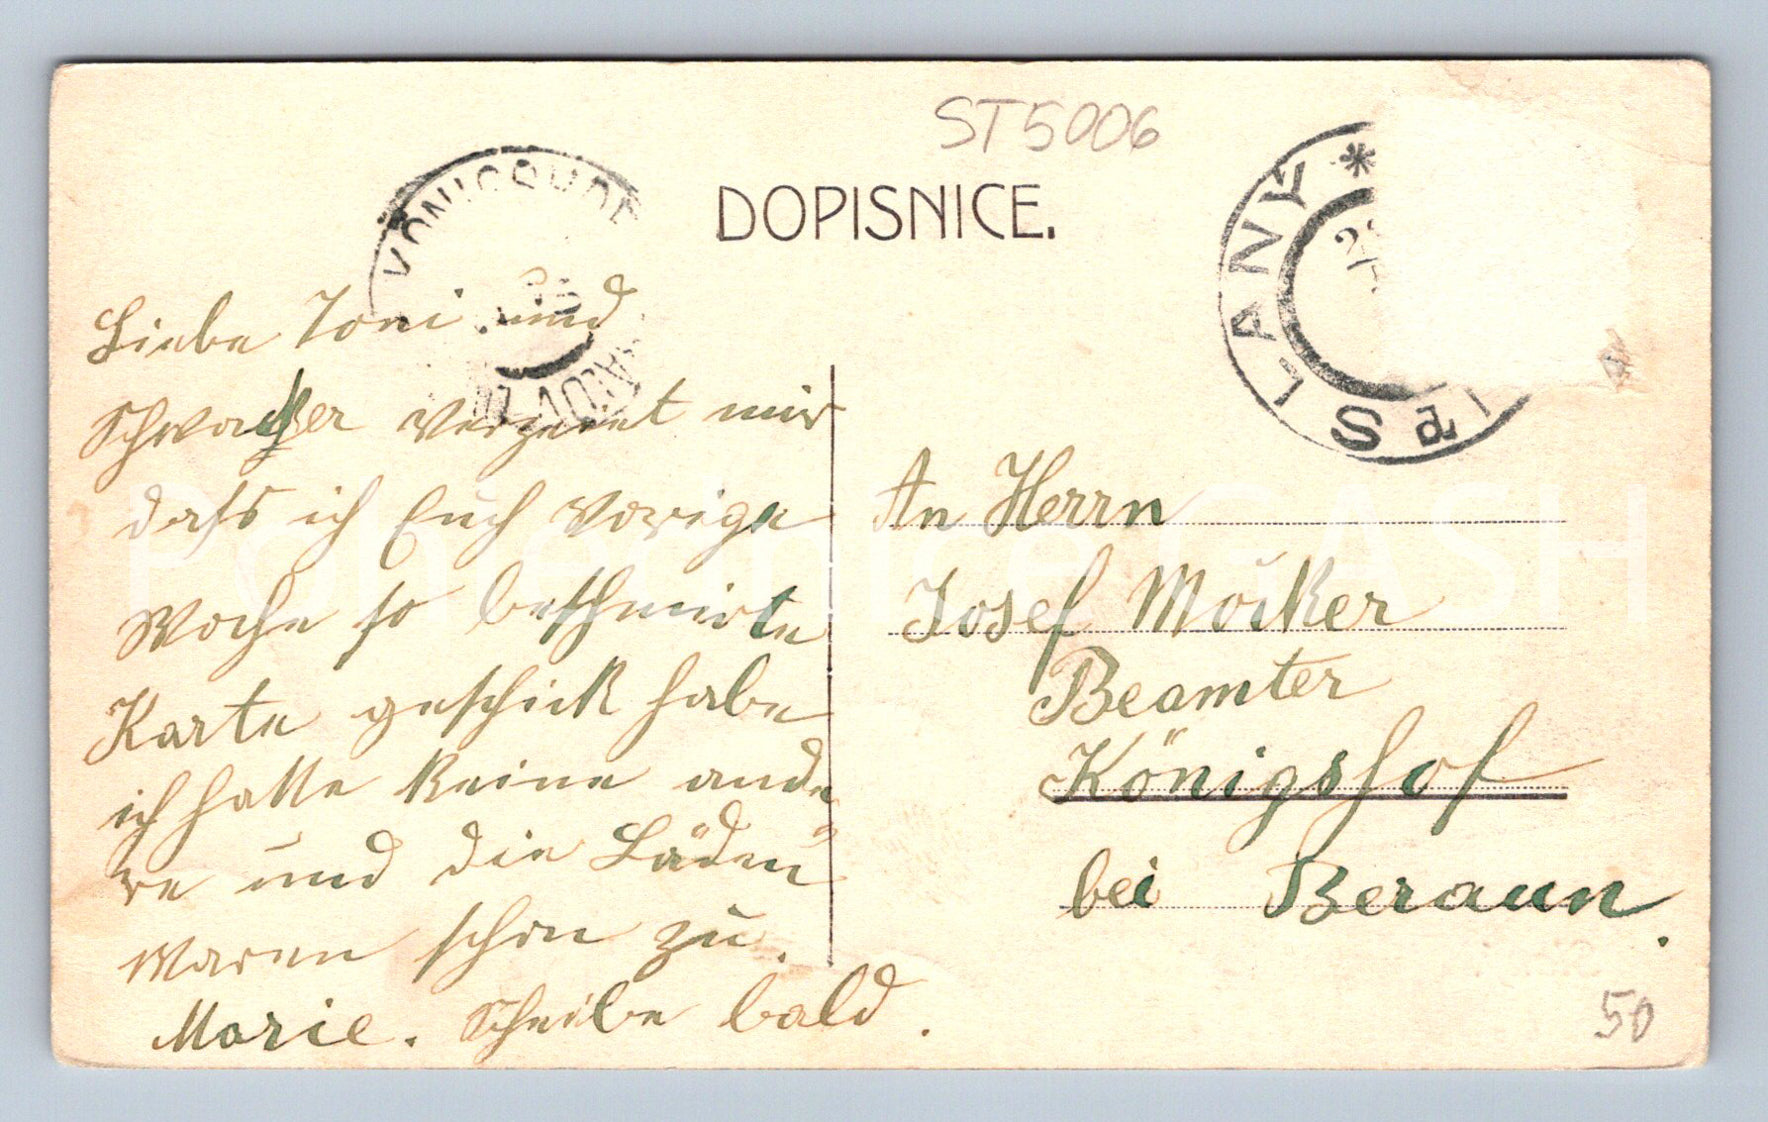 ST5006
DOPISNICE.
SLANY *
Liebe Toni und
Schwager verzeiet mir
daß ich Euch vorige
Woche so beschmirte
Karte geschick habe
ich hatte keine ande
re und die Läden
waren schon zu.
Marie. Schreibe bald.
An Herrn
Josef Mocker
Beamter
Königshof
bei Beraun.
50
Pohlednice GASH